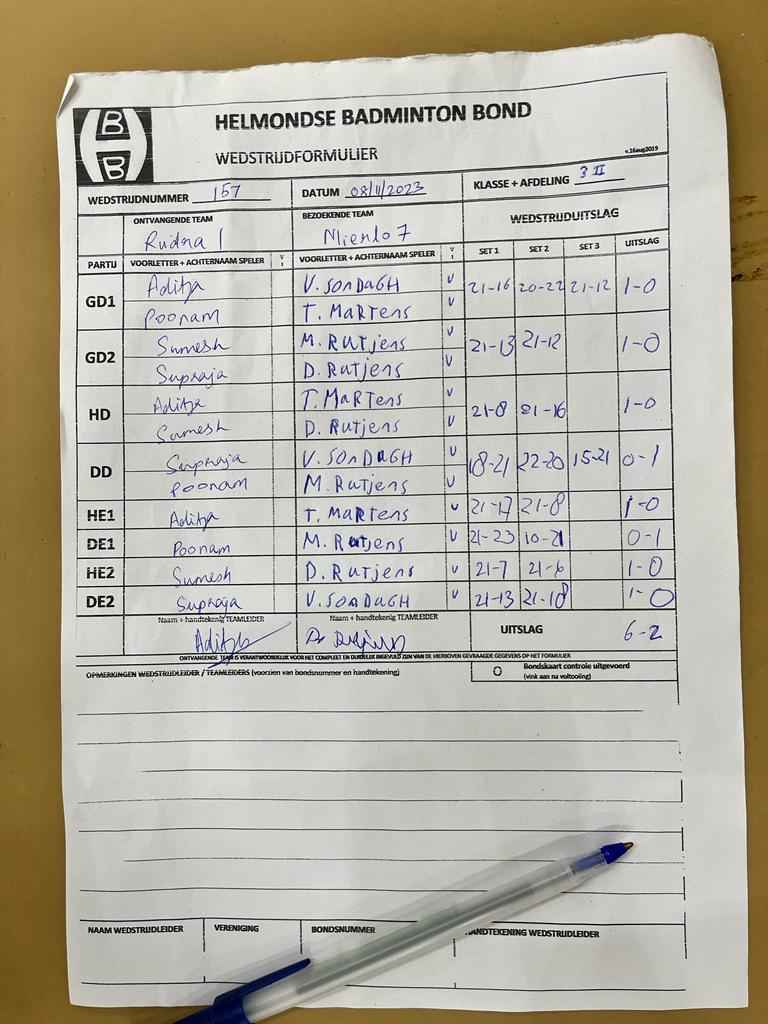 HELMONDSE BADMINTON BOND
WEDSTRIJDFORMULIER
v.16aug2019
WEDSTRIJDNUMMER 157 DATUM 08/11/2023 KLASSE + AFDELING 3 II
ONTVANGENDE TEAM BEZOEKENDE TEAM WEDSTRIJDUITSLAG
Rudra 1 Mierlo 7
PARTIJ VOORLETTER + ACHTERNAAM SPELER VOORLETTER + ACHTERNAAM SPELER SET 1 SET 2 SET 3 UITSLAG
GD1 Aditya V. SONDAGH V 21-16 20-22 21-12 1-0
Poonam T. MARTENS V
GD2 Sumesh M. RUTJENS V 21-13 21-12 1-0
Supraja D. RUTJENS V
HD Aditya T. MARTENS V 21-8 21-16 1-0
Sumesh D. RUTJENS V
DD Supraja V. SONDAGH V 18-21 22-20 15-21 0-1
Poonam M. RUTJENS V
HE1 Aditya T. MARTENS V 21-17 21-8 1-0
DE1 Poonam M. RUTJENS V 21-23 10-21 0-1
HE2 Sumesh D. RUTJENS V 21-7 21-6 1-0
DE2 Supraja V. SONDAGH V 21-13 21-18 1-0
Naam + handtekenig TEAMLEIDER Naam + handtekenig TEAMLEIDER UITSLAG 6-2
Aditya
ONTVANGENDE TEAM IS VERANTWOORDELIJK VOOR HET COMPLEET EN DUIDELIJK INGEVULD ZIJN VAN DE HIERBOVEN GEVRAAGDE GEGEVENS OP HET FORMULIER
OPMERKINGEN WEDSTRIJDLEIDER / TEAMLEIDERS (voorzien van bondsnummer en handtekening) O Bondskaart controle uitgevoerd
(vink aan na voltooiing)
NAAM WEDSTRIJDLEIDER VERENIGING BONDSNUMMER HANDTEKENING WEDSTRIJDLEIDER